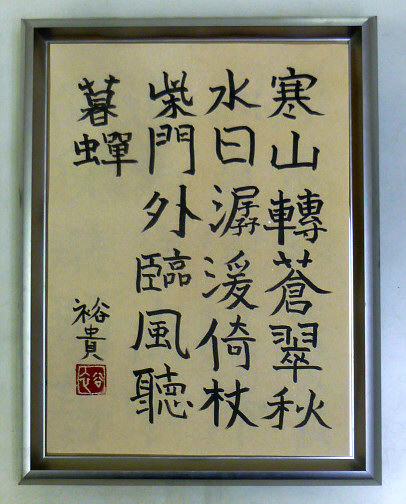 寒山轉蒼翠秋
水日潺湲倚杖
柴門外臨風聽
暮蟬
裕貴